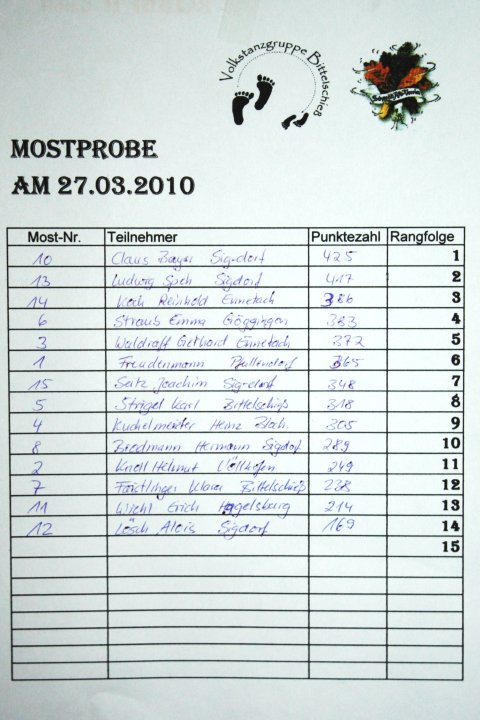 Volkstanzgruppe Bittelschieß
MOSTPROBE
AM 27.03.2010
Most-Nr. Teilnehmer Punktezahl Rangfolge
10 Claus Sigdorf 425 1
13 Ludwig Speh Sigdorf 417 2
14 Koch Reinhold Ennetach 386 3
6 Straub Emma Göggingen 383 4
3 Waldraff Gethard Ennetach 372 5
1 Freudenmann Pfullendorf 365 6
15 Seitz Joachim Sigdorf 348 7
5 Strigel Karl Bittelschieß 318 8
4 Kuchelmeister Heinz 305 9
8 Hermann Sigdorf 289 10
2 Knoll Helmut 249 11
7 Klara Bittelschieß 238 12
11 Erich Hagelsburg 214 13
12 Lösch Alois Sigdorf 169 14
15